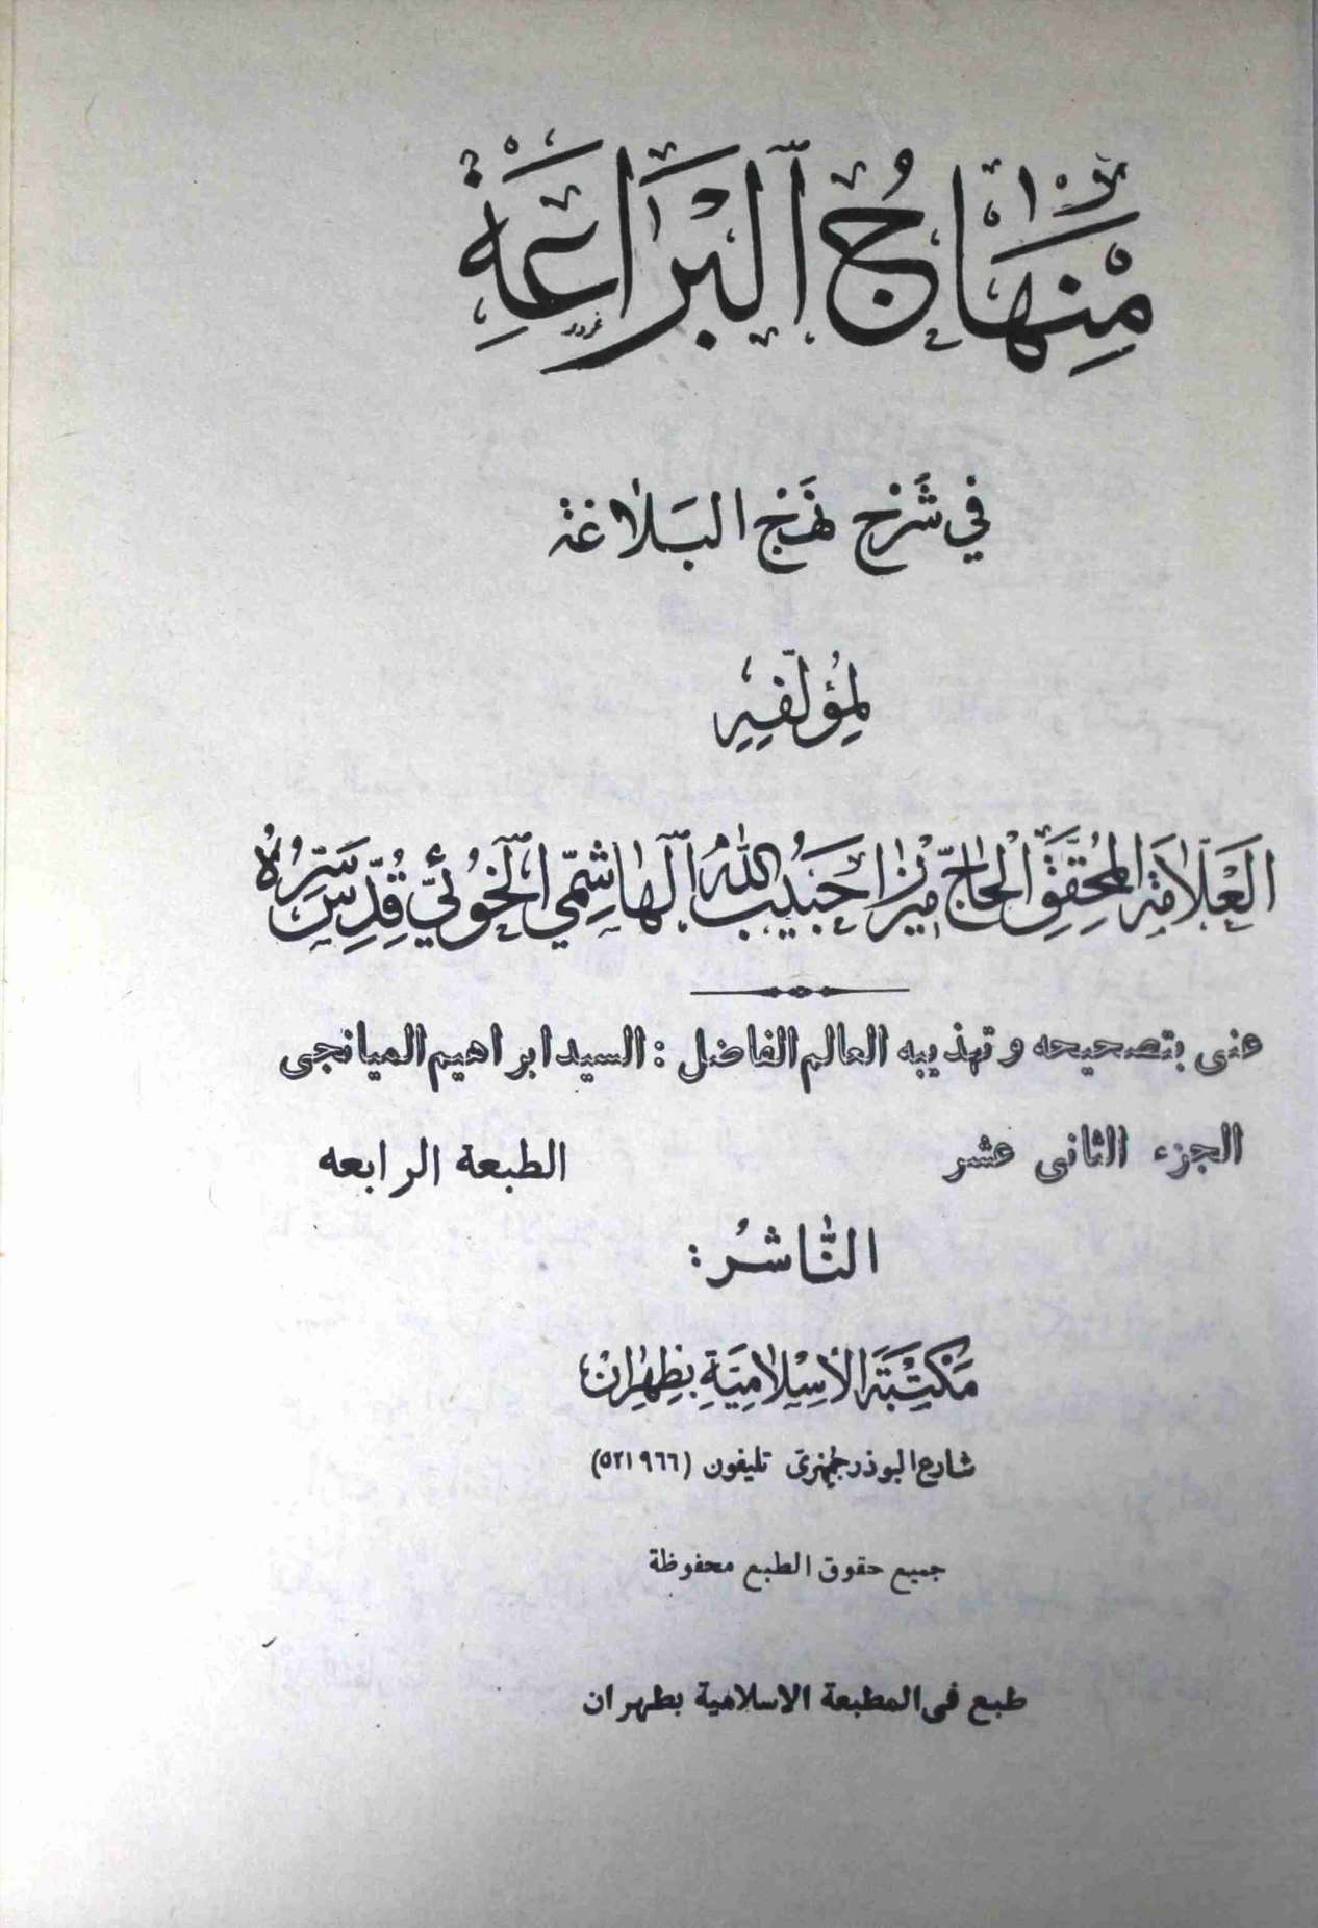 مِنْهَاجُ ٱلْبَرَاعَةِ
في شَرْح نَهْج البَلاغة
لِمُؤَلِّفِهِ
العَلّامَة المُحَقِّق الحَاجّ ميرزا حَبيبُ اللهُ الهاشِمِّي الخُوئيّ قُدِّسَ سِرُّهُ
عنى بتصحيحه وتهذيبه العالم الفاضل : السيد ابراهيم الميانجى
الجزء الثانى عشر الطبعة الرابعه
النَّاشرُ :
مَكْتَبَة الاسْلامِيَّةِ بِطِهْران
شارع البوذرجمهرى تليفون (٥٢١٩٦٦)
جميع حقوق الطبع محفوظة
طبع فى المطبعة الاسلامية بطهران